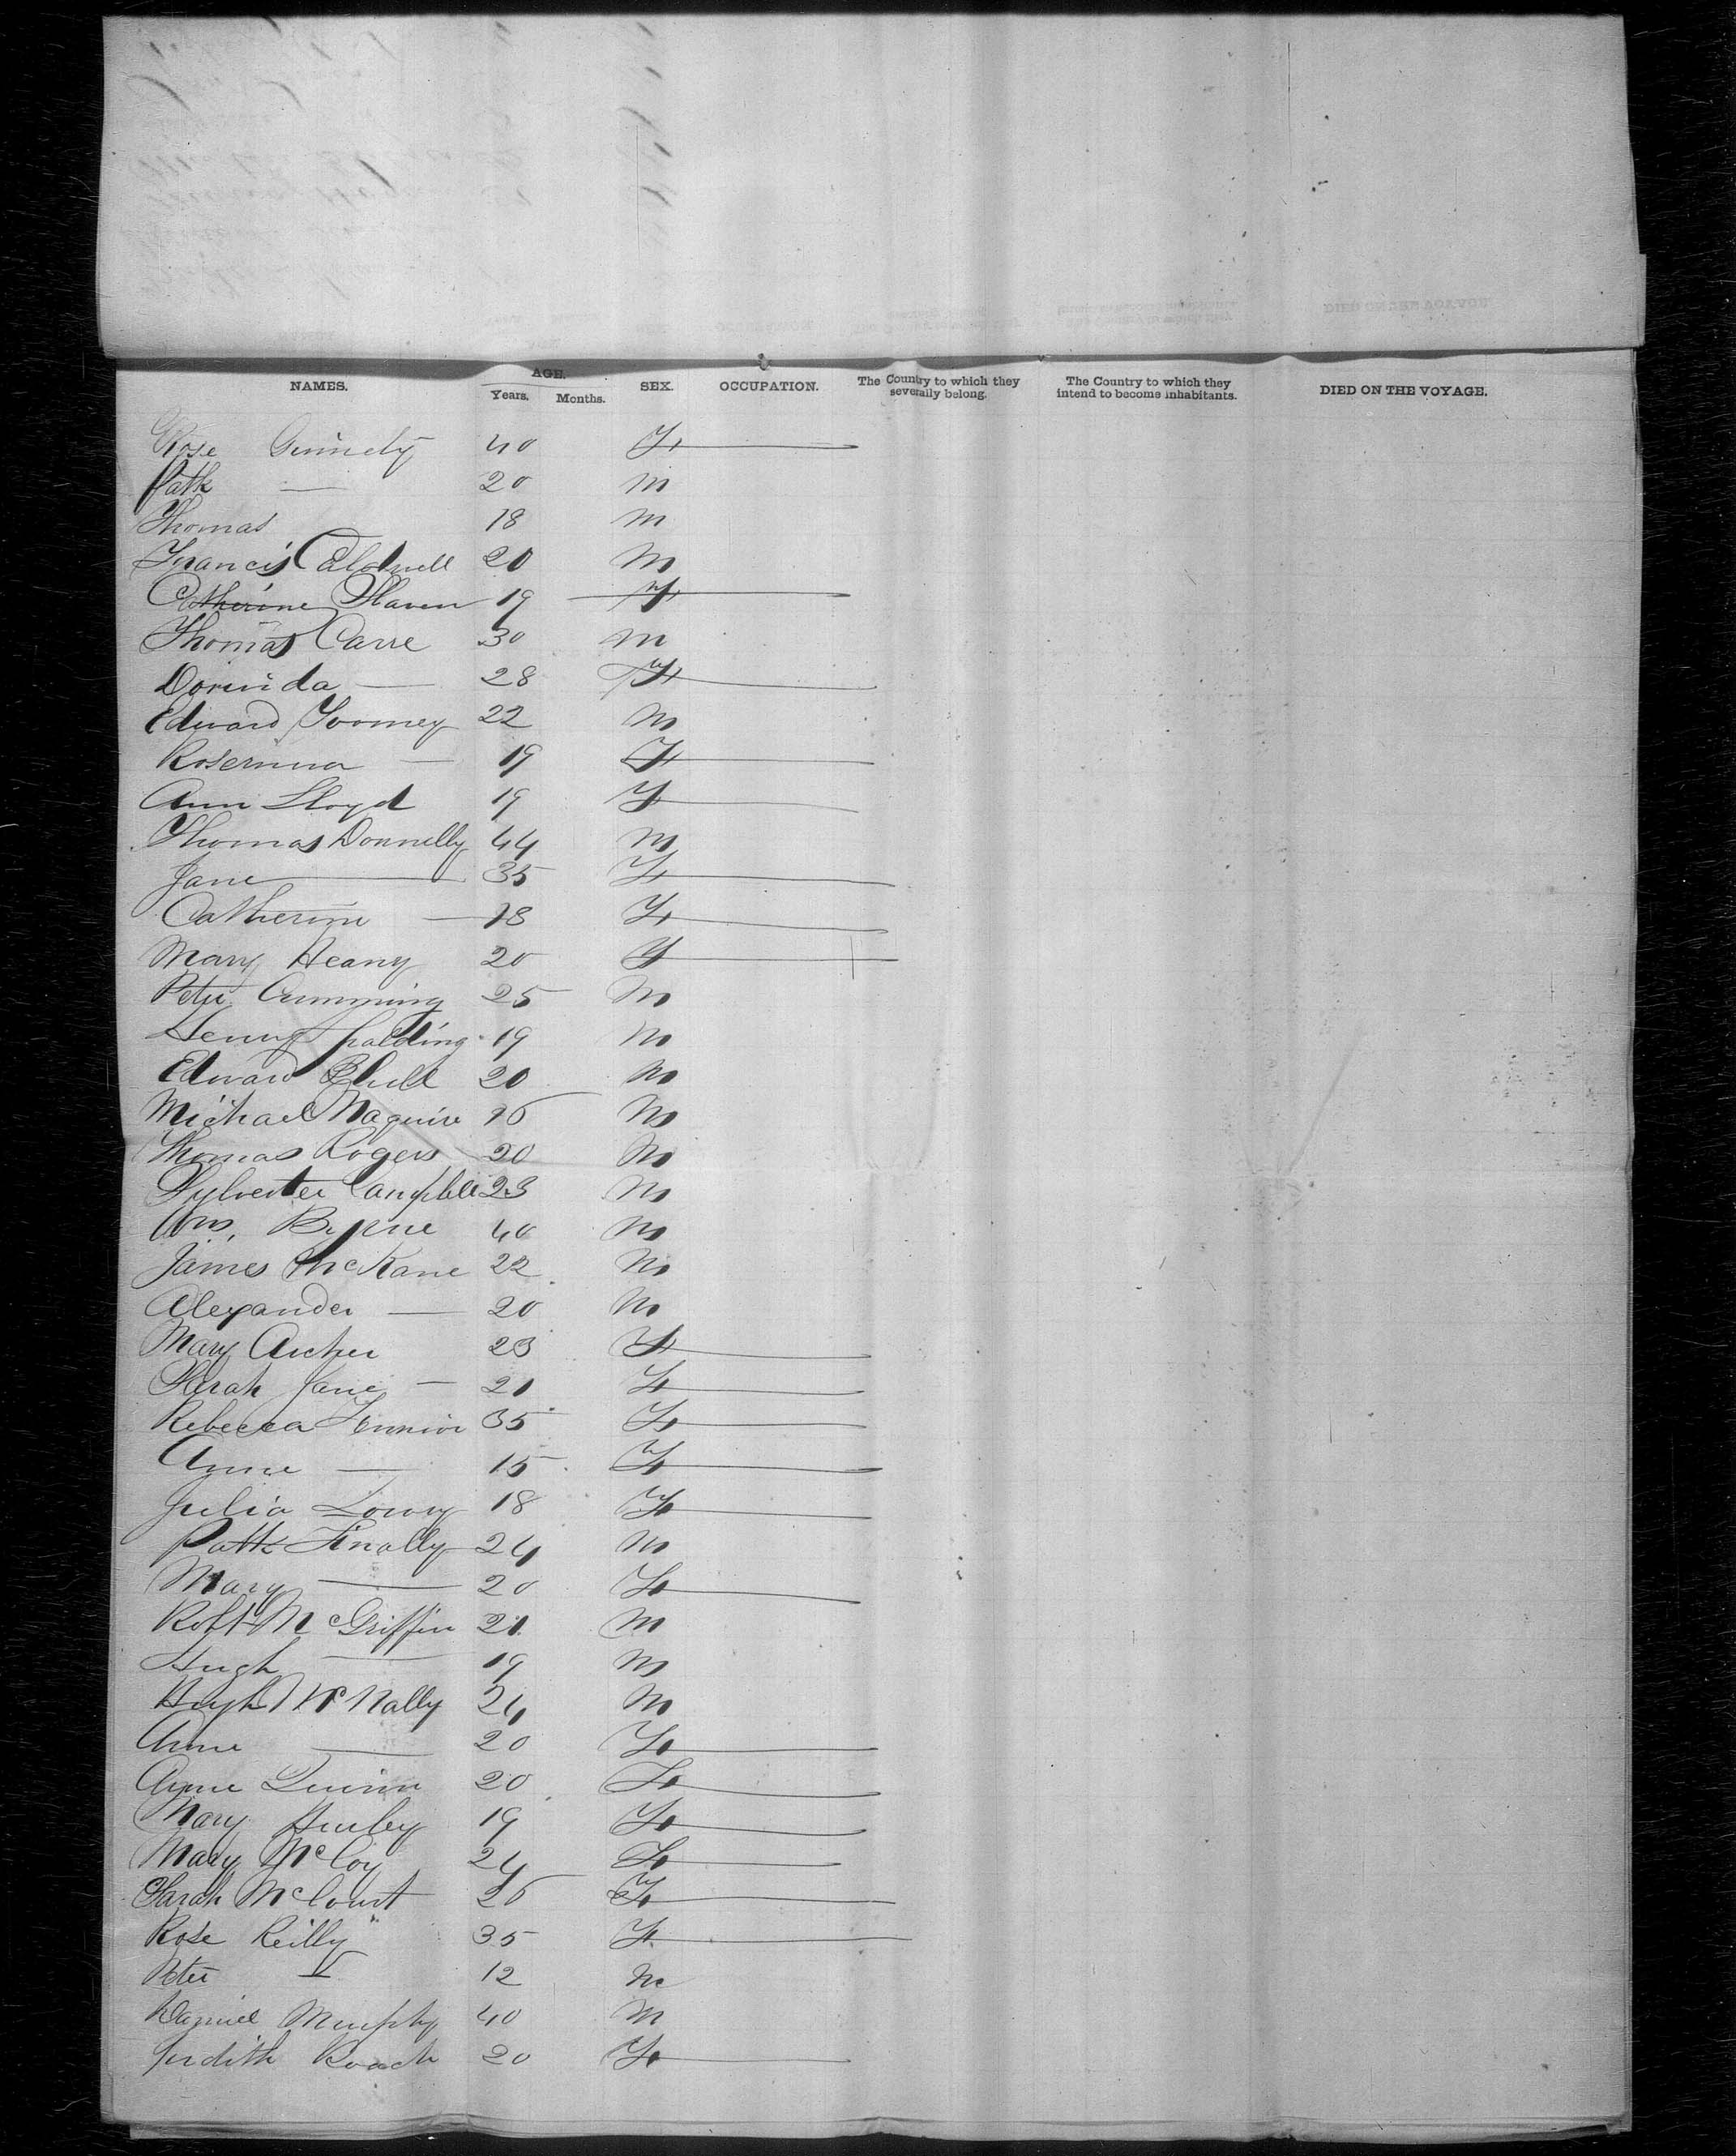 NAMES. AGE. Years. Months. SEX. OCCUPATION. The Country to which they severally belong. The Country to which they intend to become inhabitants. DIED ON THE VOYAGE.
Rose 40 F
Patk — 20 m
Thomas 18 m
Francis Caldwell 20 m
Catherine Slaven 19 F
Thomas Carre 30 m
Dorinda — 28 F
Edward Toomey 22 m
Rosennna — 19 F
Ann Lloyd 19 F
Thomas Donnelly 44 m
Jane — 35 F
Catherine — 18 F
Mary Heany 20 F
Peter Cumming 25 m
Henry Spalding 19 m
Edward 20 m
Michael Maguire 16 m
Thomas Rogers 20 m
Sylvester Campbell 23 m
Wm. Byrne 40 m
James McKane 22 m
Alexander — 20 m
Mary Archer 23 F
Sarah Jane — 21 F
Rebecca 35 F
Anne — 15 F
Julia Lowry 18 F
Patk Finally 24 m
Mary — 20 F
Robt McGriffin 21 m
Hugh — 19 m
Hugh McNally 24 m
Anne — 20 F
Anne Quinn 20 F
Mary Hurley 19 F
Mary McCoy 24 F
Sarah McCourt 26 F
Rose Reilly 35 F
Peter — 12 m
Daniel Murphy 40 m
Judith Roach 20 F